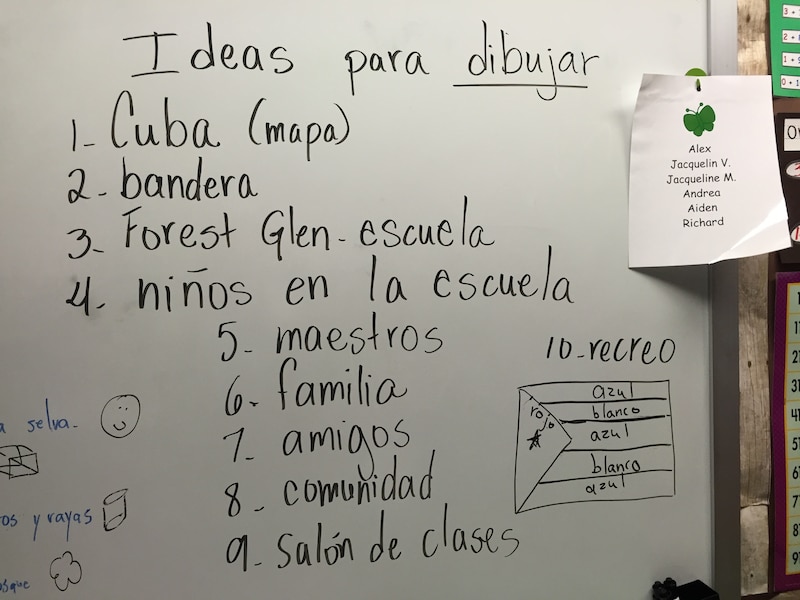 Ideas para dibujar
1- Cuba (mapa)
2- bandera
3- Forest Glen - escuela
4. niños en la escuela
5- maestros
6- familia
7- amigos
8- comunidad
9- salón de clases
10-recreo
azul
blanco
rojo
azul
blanco
azul
selva.
y rayas
Alex
Jacquelin V.
Jacqueline M.
Andrea
Aiden
Richard